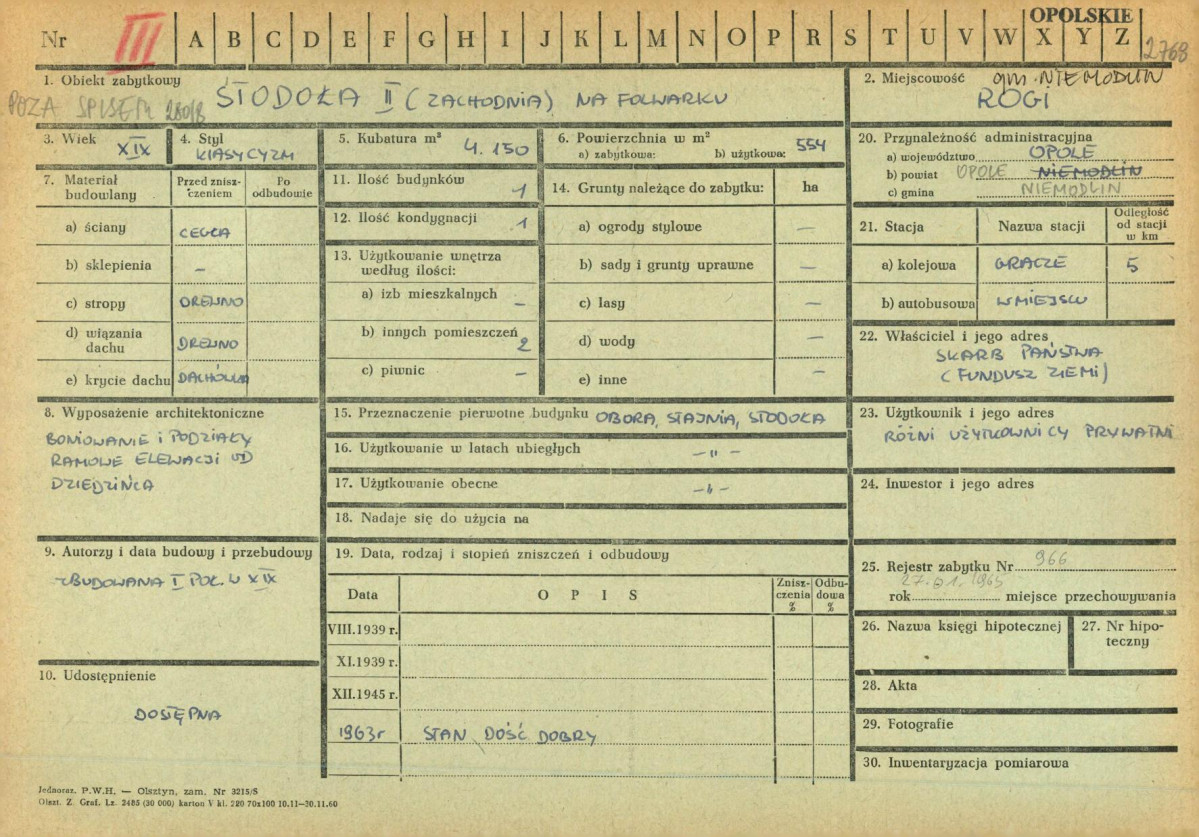 OPOLSKIE
Nr III A B C D E F G H I J K L M N O P R S T U V W X Y Z
2768
1. Obiekt zabytkowy
POZA SPISEM
STODOŁA II (ZACHODNIA) NA FOLWARKU
2. Miejscowość gm. NIEMODLIN
ROGI
3. Wiek XIX
4. Styl
KLASYCYZM
5. Kubatura m³ 4.150
6. Powierzchnia w m² 554
a) zabytkowa: b) użytkowa:
20. Przynależność administracyjna
a) województwo OPOLE
b) powiat OPOLE NIEMODLIN
c) gmina NIEMODLIN
7. Materiał budowlany
Przed znisz-
czeniem
Po
odbudowie
a) ściany CEGŁA
b) sklepienia –
c) stropy DREWNO
d) wiązania
dachu DREWNO
e) krycie dachu DACHÓWKA
11. Ilość budynków 1
12. Ilość kondygnacji 1
13. Użytkowanie wnętrza
według ilości:
a) izb mieszkalnych –
b) innych pomieszczeń 2
c) piwnic –
14. Grunty należące do zabytku: ha
a) ogrody stylowe –
b) sady i grunty uprawne –
c) lasy –
d) wody –
e) inne –
21. Stacja Nazwa stacji
Odległość
od stacji
w km
a) kolejowa GRACZE 5
b) autobusowa W MIEJSCU
22. Właściciel i jego adres
SKARB PAŃSTWA
(FUNDUSZ ZIEMI)
8. Wyposażenie architektoniczne
BONIOWANIE I PODZIAŁY
RAMOWE ELEWACJI OD
DZIEDZIŃCA
15. Przeznaczenie pierwotne budynku OBORA, STAJNIA, STODOŁA
16. Użytkowanie w latach ubiegłych –"–
17. Użytkowanie obecne –"–
18. Nadaje się do użycia na
23. Użytkownik i jego adres
RÓŻNI UŻYTKOWNICY PRYWATNI
24. Inwestor i jego adres
9. Autorzy i data budowy i przebudowy
ZBUDOWANA I POŁ. W XIX
19. Data, rodzaj i stopień zniszczeń i odbudowy
Data OPIS
Znisz-
czenia
%
Odbu-
dowa
%
VIII.1939 r.
XI.1939 r.
XII.1945 r.
1963r STAN DOŚĆ DOBRY
10. Udostępnienie
DOSTĘPNA
25. Rejestr zabytku Nr 966
27.01.1965
rok miejsce przechowywania
26. Nazwa księgi hipotecznej
27. Nr hipo-
teczny
28. Akta
29. Fotografie
30. Inwentaryzacja pomiarowa
Jednoraz. P.W.H. — Olsztyn, zam. Nr 3215/S
Olszt. Z. Graf. Lz. 2485 (30 000) karton V kl. 220 70x100 10.11—30.11.60